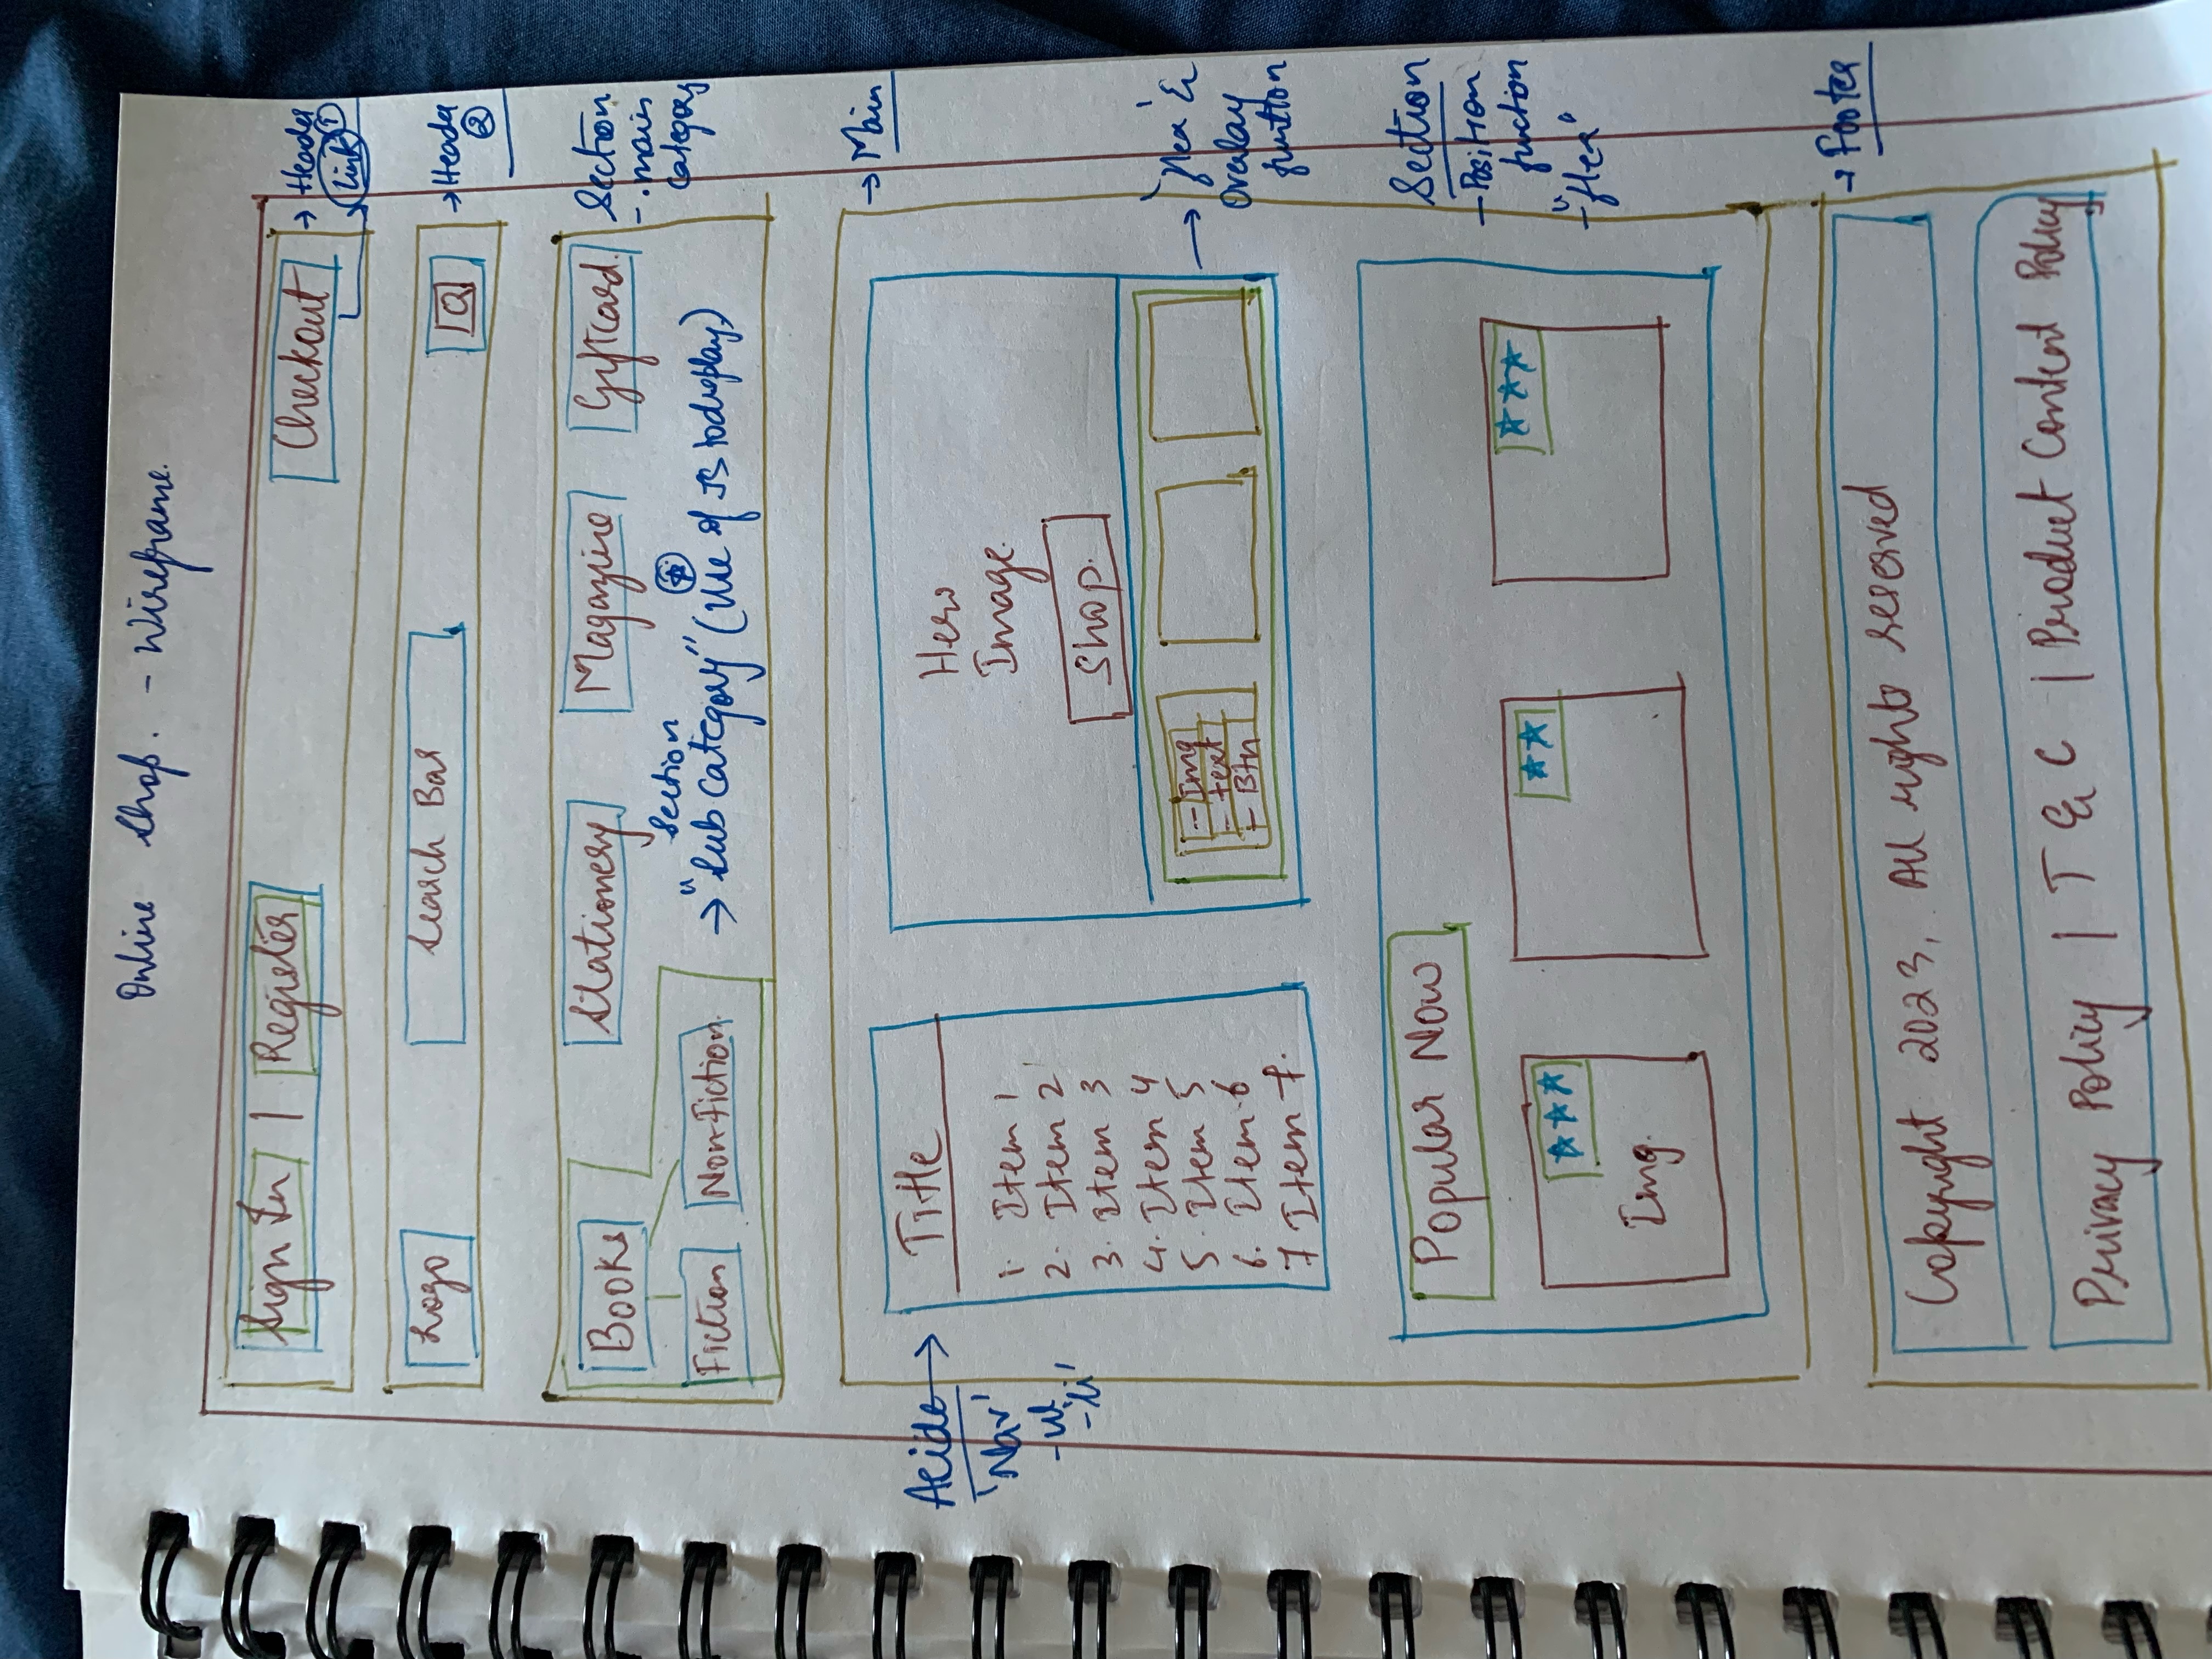 Online Shop. - Wireframe.
Sign In | Register
Checkout
→ Header
Link 1
Logo
Search Bar
Q
→ Header
2
Books
Stationery
Magazine
Giftcard.
Section
- main
category
Fiction
Non-Fiction.
Section
→ "Sub Category" (Use of JS to display)
→ Main
Aside →
'Nav'
- ul
- 'li'
Title
1. Item 1
2. Item 2
3. Item 3
4. Item 4
5. Item 5
6. Item 6
7 Item 7.
Hero
Image.
Shop.
- Img
- text
- Btn
→ 'flex' &
Overlay
function
Popular Now
★★★
★★
★★★
Img.
Section
- Position
fuction
- "flex"
→ Footer
Copyright 2023, All rights reserved
Privacy Policy | T & C | Product Content Policy